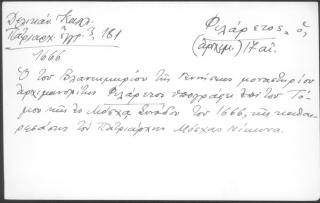 Δελικάν. Καλλ.
Πατριαρχ. ἔγγρ. 3, 181
Φιλάρετος, ὁ,
(ἀρχιμ.) 17 αἰ.
1666
Ὁ τοῦ Βλαντιμηρίου τῆς Γεννήσεως μοναστηρίου
ἀρχιμανδρίτης Φιλάρετος ὑπογράφει ἐπὶ τοῦ Τό-
μου τῆς ἐν Μόσχᾳ Συνόδου τοῦ 1666, τῆς καθαι-
ρεσάσης τὸν Πατριάρχην Μόσχας Νίκωνα.